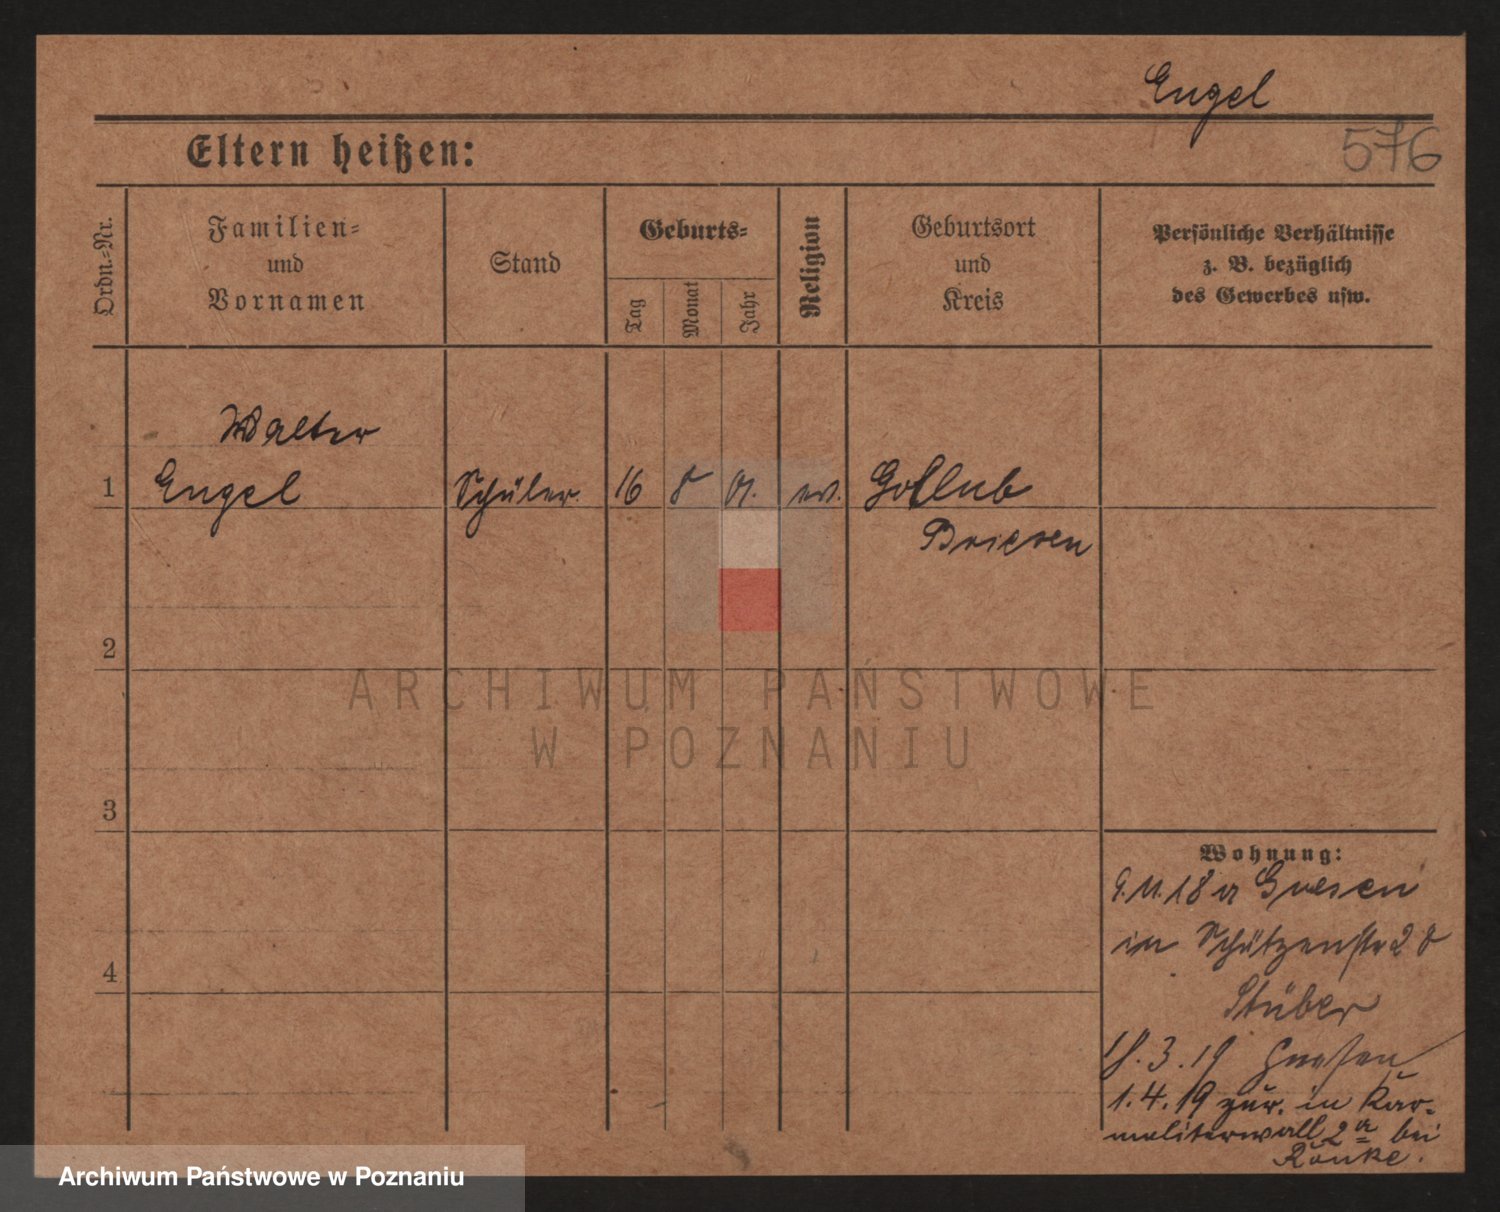 Engel
576
Eltern heißen:
Ordn.-Nr.
Familien-
und
Vornamen
Stand
Geburts-
Tag
Monat
Jahr
Religion
Geburtsort
und
Kreis
Persönliche Verhältnisse
z. B. bezüglich
des Gewerbes usw.
Walter
1 Engel Schüler 16 8 01. ev. Gollub
Briesen
2
3
4
ARCHIWUM PAŃSTWOWE
W POZNANIU
Wohnung:
9.11.18 a Gnesen
in Schützenstr 28
Stüber
18.3.19 Gnesen
1.4.19 zur. in Kar-
meliterwall 2a bei
Archiwum Państwowe w Poznaniu